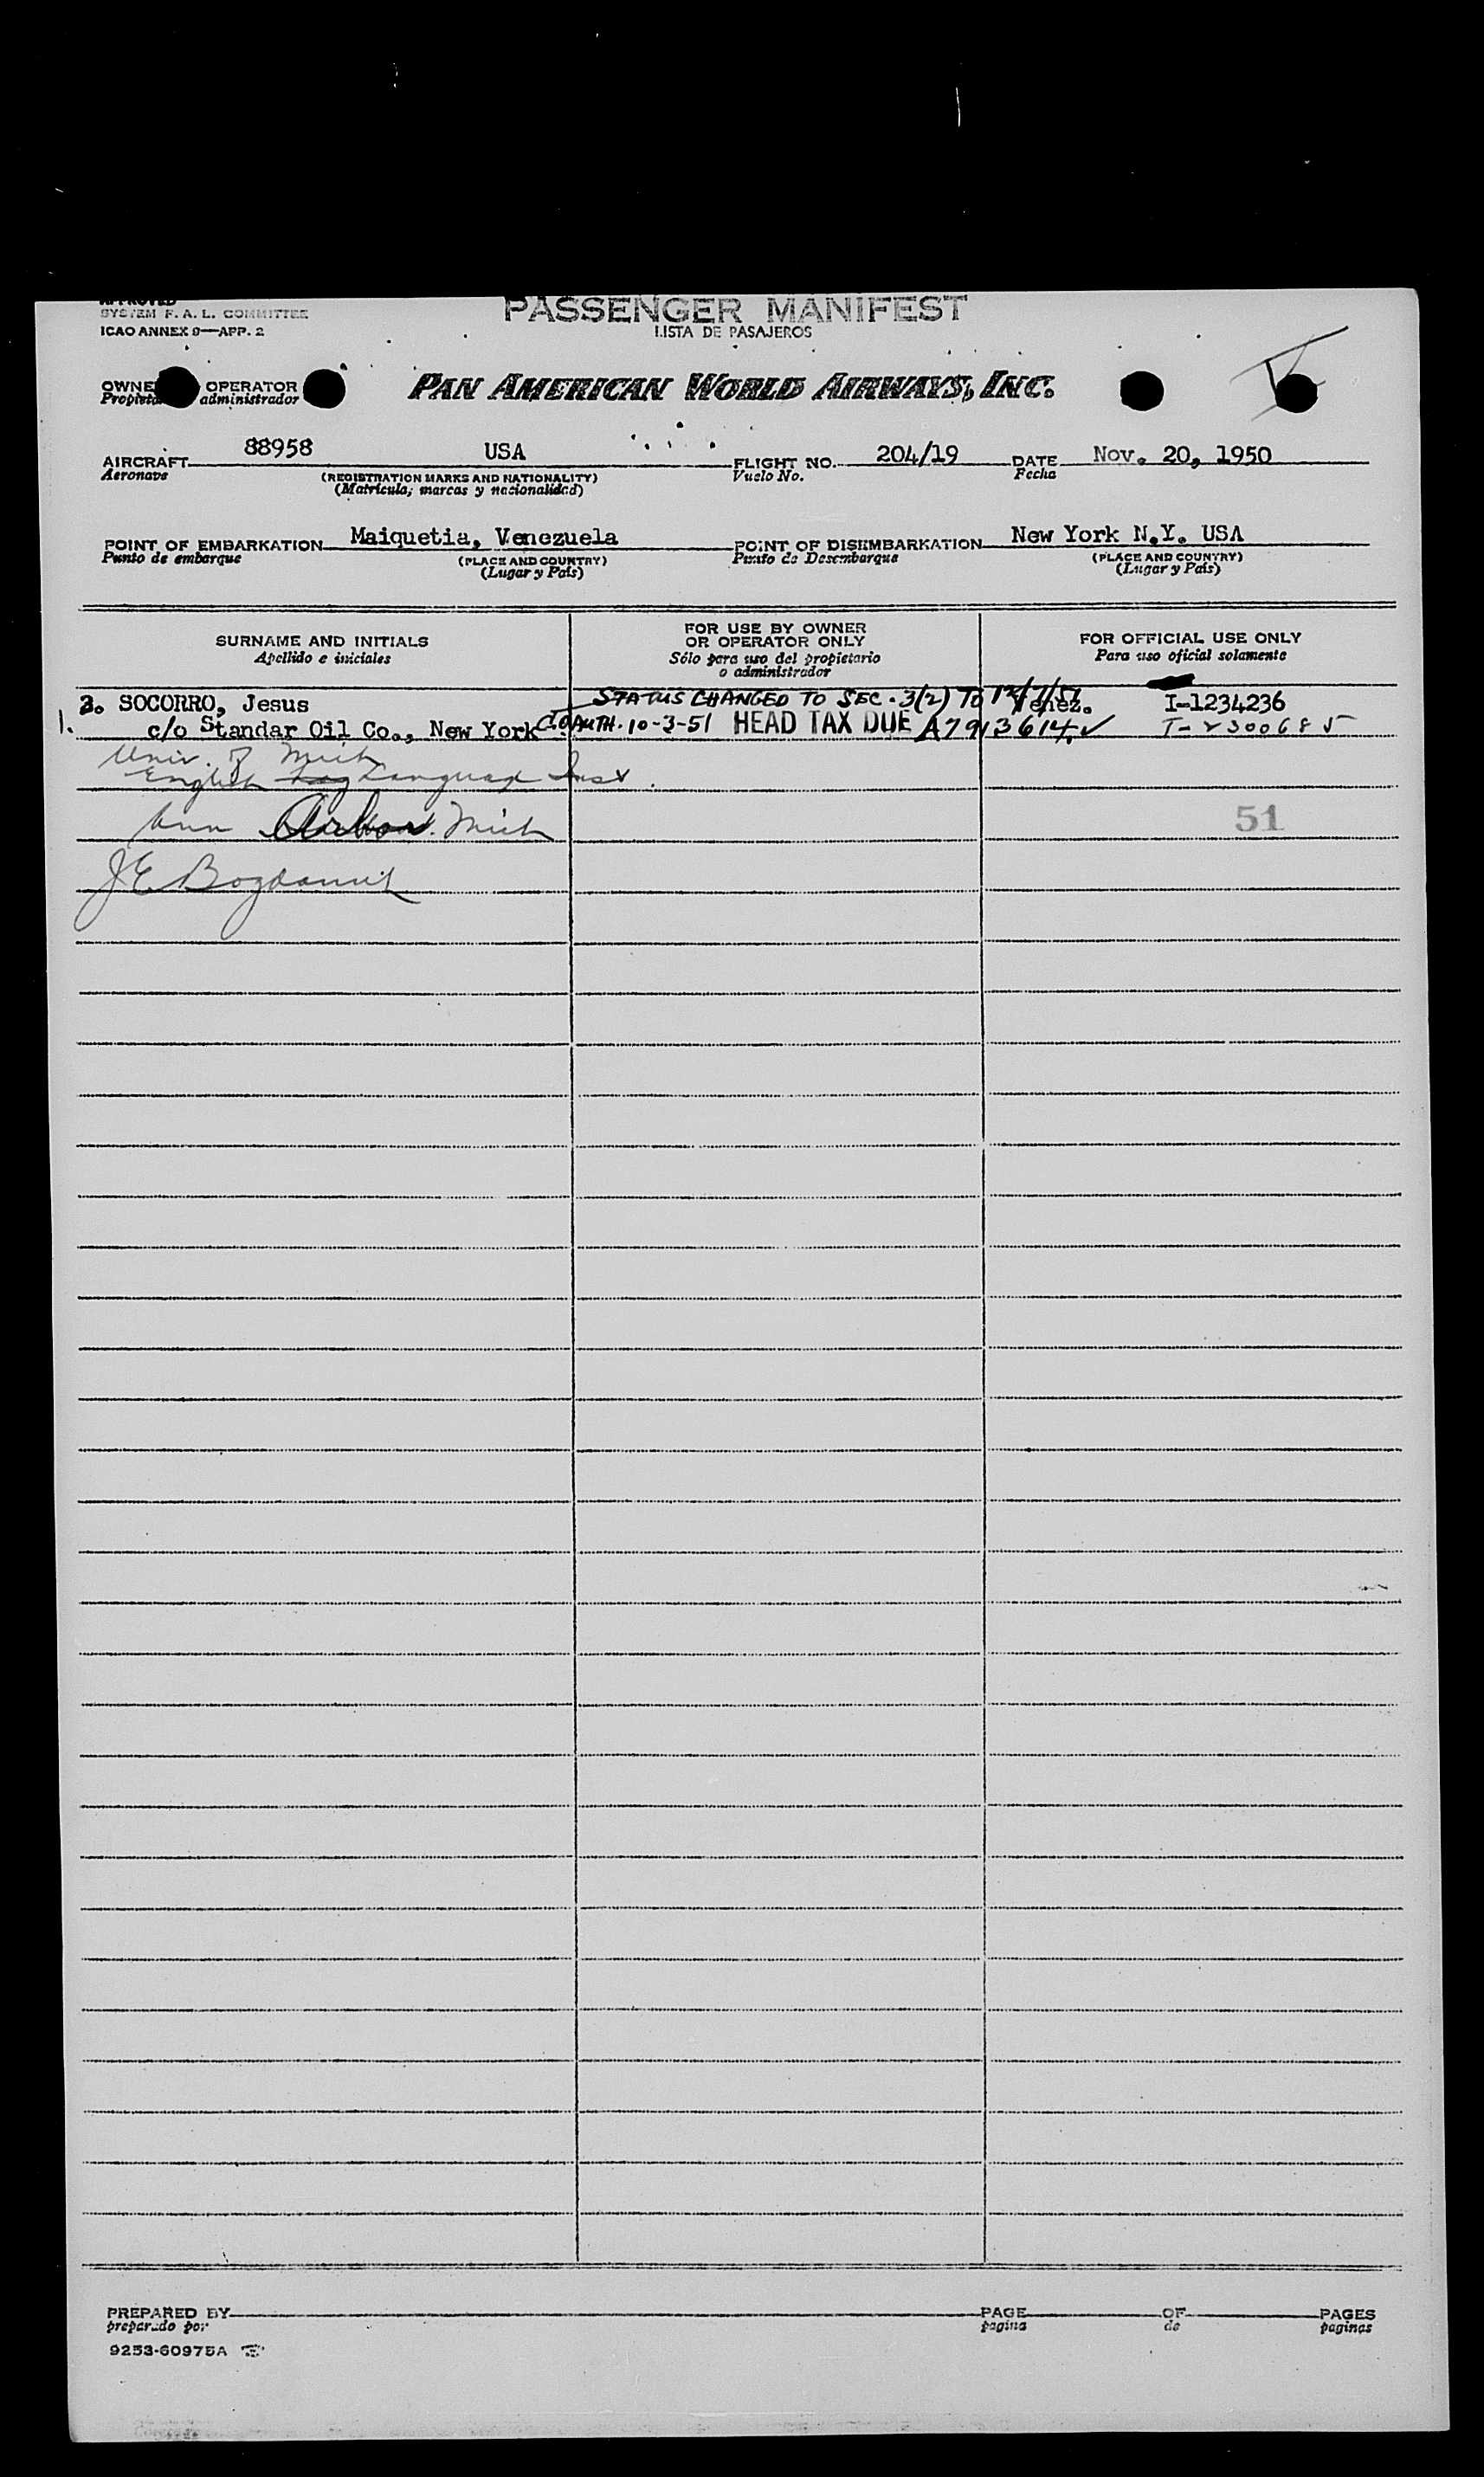 APPROVED
SYSTEM F. A. L. COMMITTEE
ICAO ANNEX 9—APP. 2
PASSENGER MANIFEST
LISTA DE PASAJEROS
OWNER OPERATOR
administrador
PAN AMERICAN WORLD AIRWAYS, INC.
AIRCRAFT 88958 USA FLIGHT NO. 204/19 DATE Nov. 20, 1950
Aeronave (REGISTRATION MARKS AND NATIONALITY) Vuelo No. Fecha
(Matrícula, marcas y nacionalidad)
POINT OF EMBARKATION Maiquetia, Venezuela POINT OF DISEMBARKATION New York N.Y. USA
Punto de embarque (PLACE AND COUNTRY) Punto de Desembarque (PLACE AND COUNTRY)
(Lugar y País) (Lugar y País)
SURNAME AND INITIALS
Apellido e iniciales
FOR USE BY OWNER
OR OPERATOR ONLY
Sólo para uso del propietario
o administrador
FOR OFFICIAL USE ONLY
Para uso oficial solamente
2. SOCORRO, Jesus STATUS CHANGED TO SEC. 3(2) TO Venez. I-1234236
1. c/o Standar Oil Co., New York C.O. AUTH. 10-3-51 HEAD TAX DUE A7913614 ✓ T-2300685
Univ. of Mich
English Language Inst.
Ann Arbor. Mich
51
PREPARED BY PAGE OF PAGES
preparado por pagina de paginas
9253-60975A